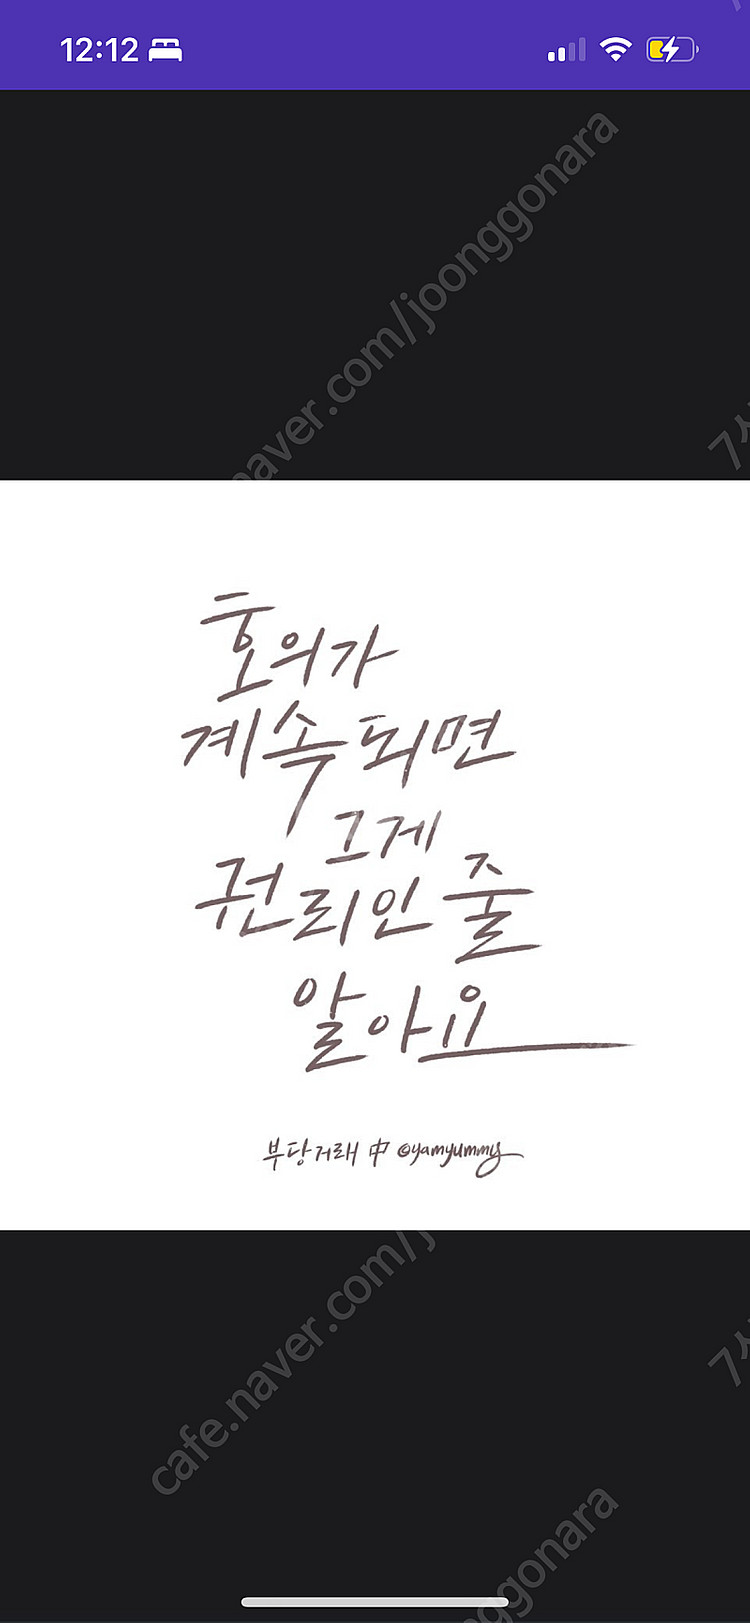 12:12
cafe.naver.com/joonggonara
호의가
계속되면
그게
권리인 줄
알아요
부당거래 中 @yamyummy
cafe.naver.com/joonggonara